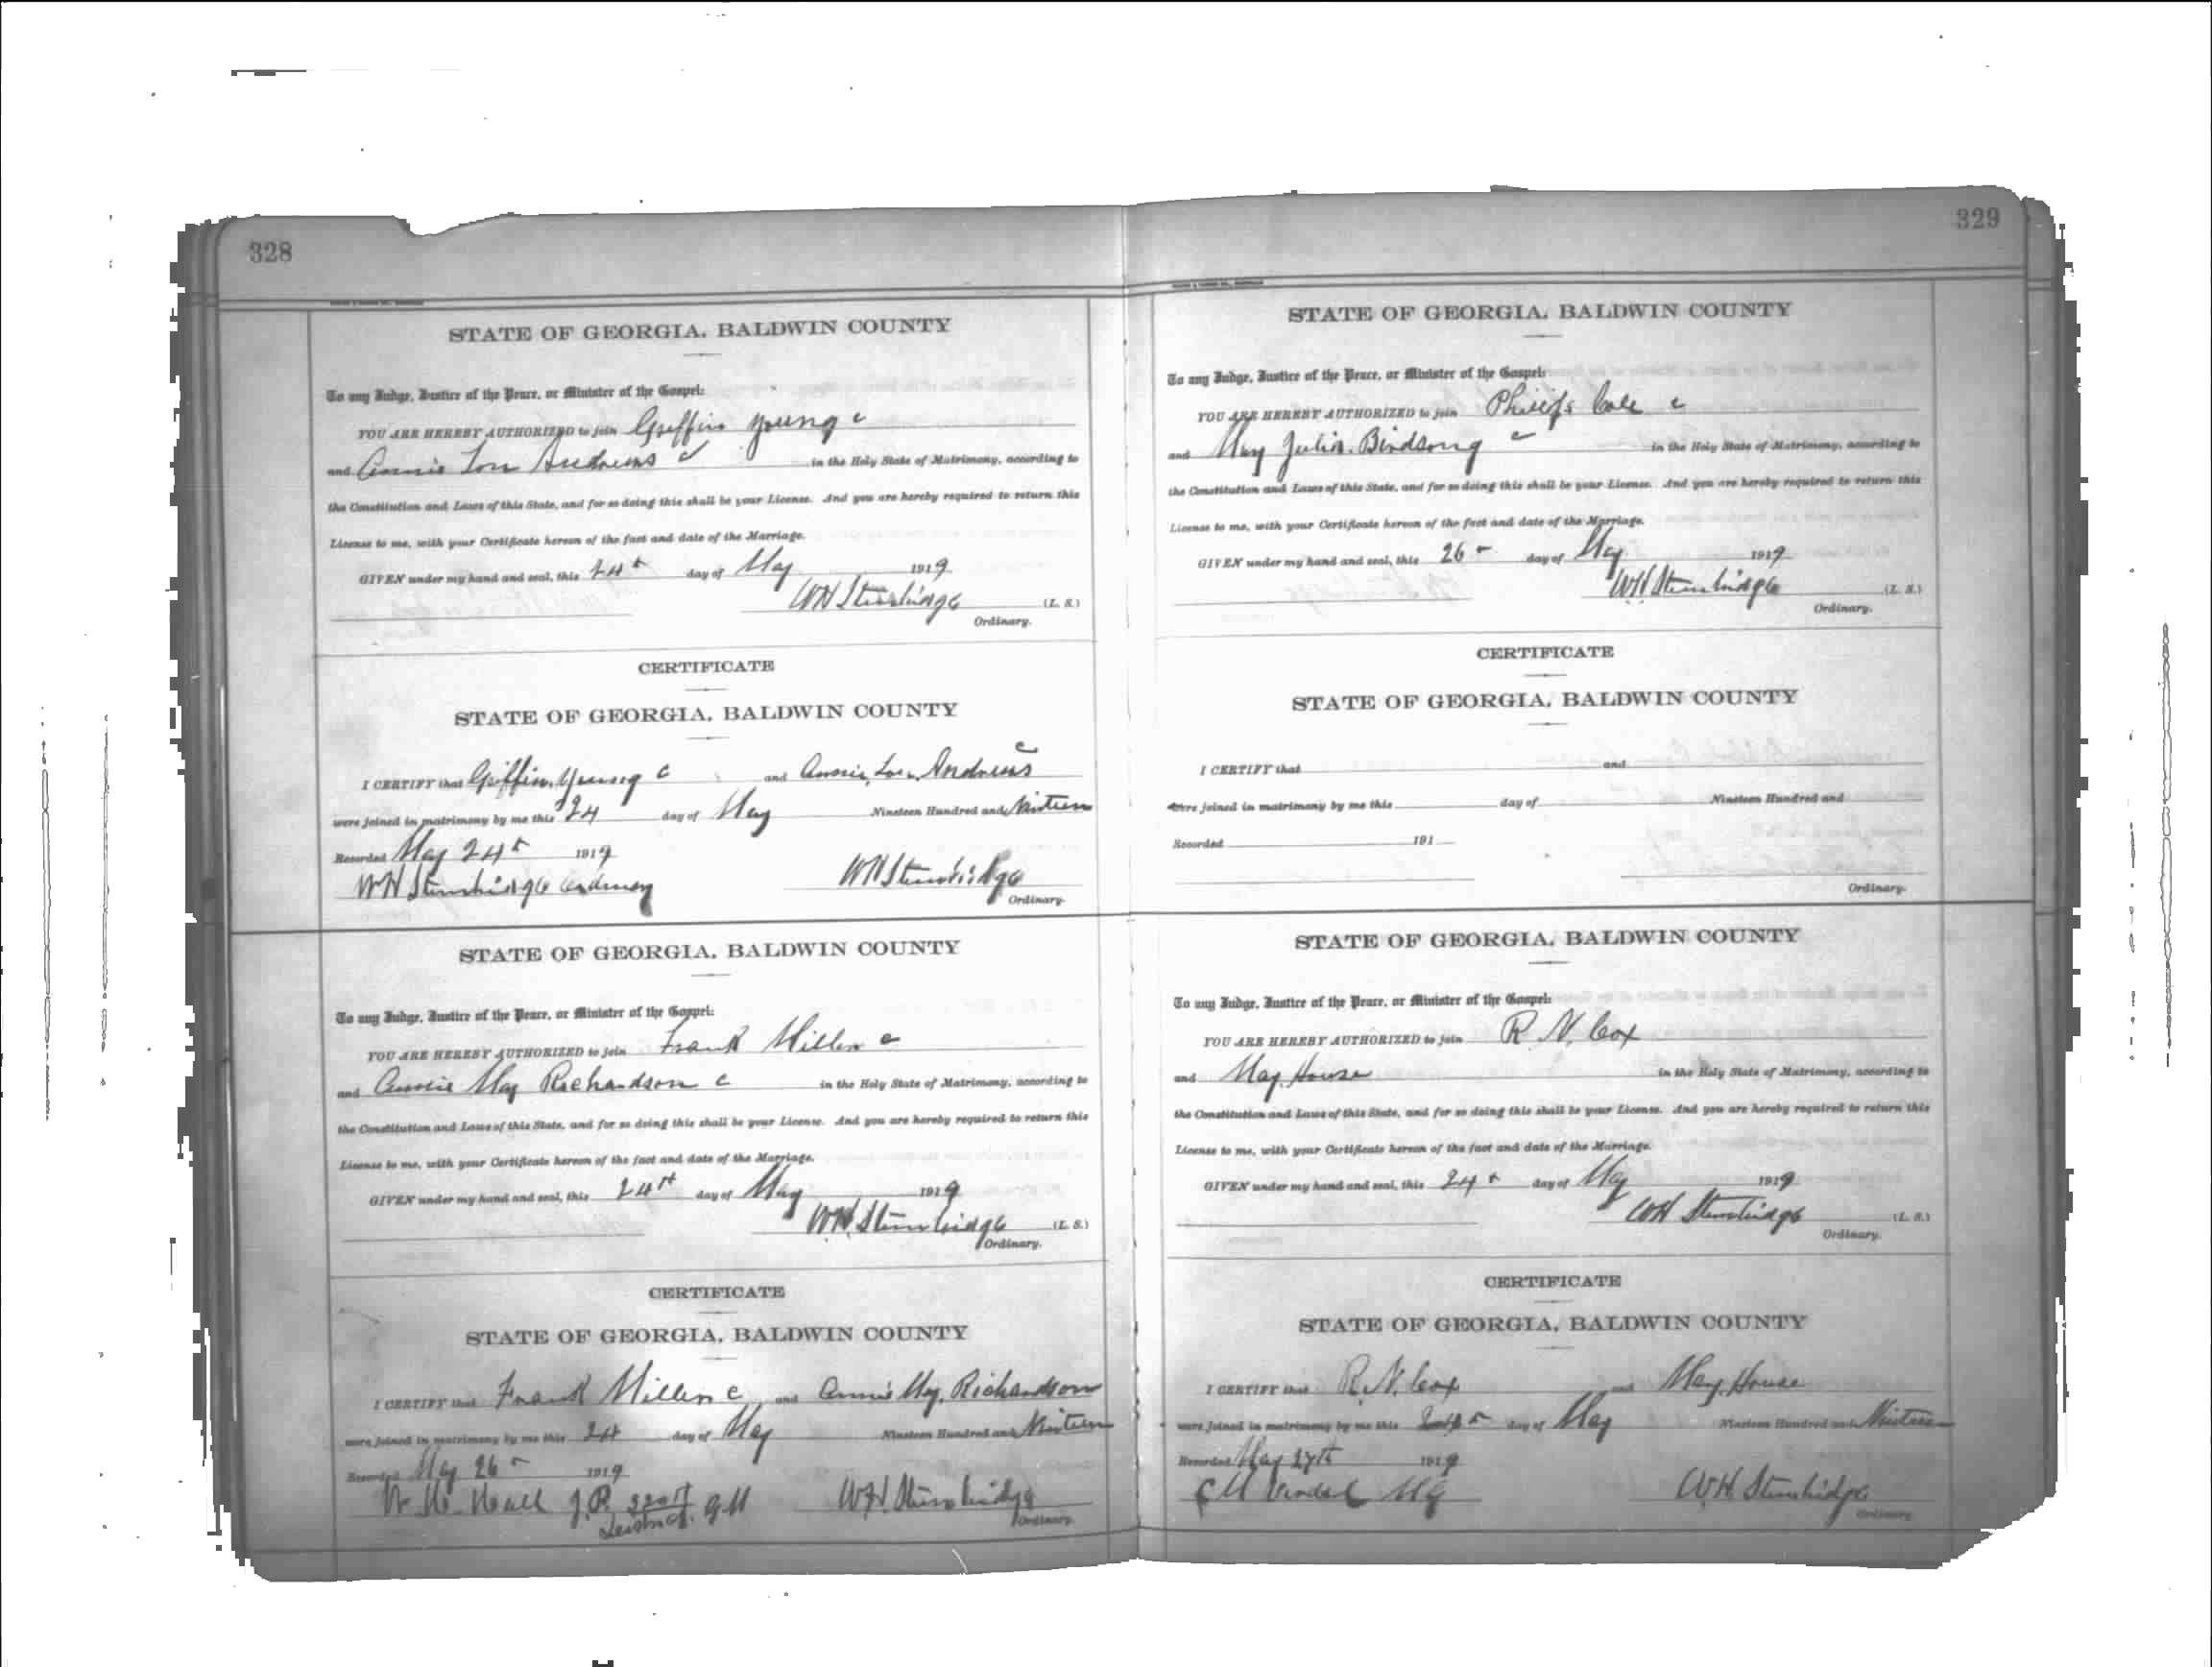 328
STATE OF GEORGIA, BALDWIN COUNTY
To any Judge, Justice of the Peace, or Minister of the Gospel:
YOU ARE HEREBY AUTHORIZED to join Griffin Young c
and Annie Lou Andrews c in the Holy State of Matrimony, according to
the Constitution and Laws of this State, and for so doing this shall be your License. And you are hereby required to return this
License to me, with your Certificate hereon of the fact and date of the Marriage.
GIVEN under my hand and seal, this 24th day of May 1919
WH Stembridge (L. S.)
Ordinary.
CERTIFICATE
STATE OF GEORGIA, BALDWIN COUNTY
I CERTIFY that Griffin Young c and Annie Lou Andrews c
were joined in matrimony by me this 24 day of May Nineteen Hundred and Ninteen
Recorded May 24th 1919
WH Stembridge Ordinary WH Stembridge
Ordinary.
STATE OF GEORGIA, BALDWIN COUNTY
To any Judge, Justice of the Peace, or Minister of the Gospel:
YOU ARE HEREBY AUTHORIZED to join Frank Miller c
and Annie May Richardson c in the Holy State of Matrimony, according to
the Constitution and Laws of this State, and for so doing this shall be your License. And you are hereby required to return this
License to me, with your Certificate hereon of the fact and date of the Marriage.
GIVEN under my hand and seal, this 24th day of May 1919
WH Stembridge (L. S.)
Ordinary.
CERTIFICATE
STATE OF GEORGIA, BALDWIN COUNTY
I CERTIFY that Frank Miller c and Annie May Richardson
were joined in matrimony by me this 24 day of May Nineteen Hundred and Ninteen
Recorded May 26th 1919
J.P. 320th G M WH Stembridge
District Ordinary.
329
STATE OF GEORGIA, BALDWIN COUNTY
To any Judge, Justice of the Peace, or Minister of the Gospel:
YOU ARE HEREBY AUTHORIZED to join Philips Cole c
and May Julia Birdsong c in the Holy State of Matrimony, according to
the Constitution and Laws of this State, and for so doing this shall be your License. And you are hereby required to return this
License to me, with your Certificate hereon of the fact and date of the Marriage.
GIVEN under my hand and seal, this 26th day of May 1919
WH Stembridge (L. S.)
Ordinary.
CERTIFICATE
STATE OF GEORGIA, BALDWIN COUNTY
I CERTIFY that and
were joined in matrimony by me this day of Nineteen Hundred and
Recorded 191
Ordinary.
STATE OF GEORGIA, BALDWIN COUNTY
To any Judge, Justice of the Peace, or Minister of the Gospel:
YOU ARE HEREBY AUTHORIZED to join R. N. Cox
and May House in the Holy State of Matrimony, according to
the Constitution and Laws of this State, and for so doing this shall be your License. And you are hereby required to return this
License to me, with your Certificate hereon of the fact and date of the Marriage.
GIVEN under my hand and seal, this 24th day of May 1919
WH Stembridge (L. S.)
Ordinary.
CERTIFICATE
STATE OF GEORGIA, BALDWIN COUNTY
I CERTIFY that R. N. Cox and May House
were joined in matrimony by me this day of May Nineteen Hundred and Ninteen
Recorded May 27th 1919
M G WH Stembridge
Ordinary